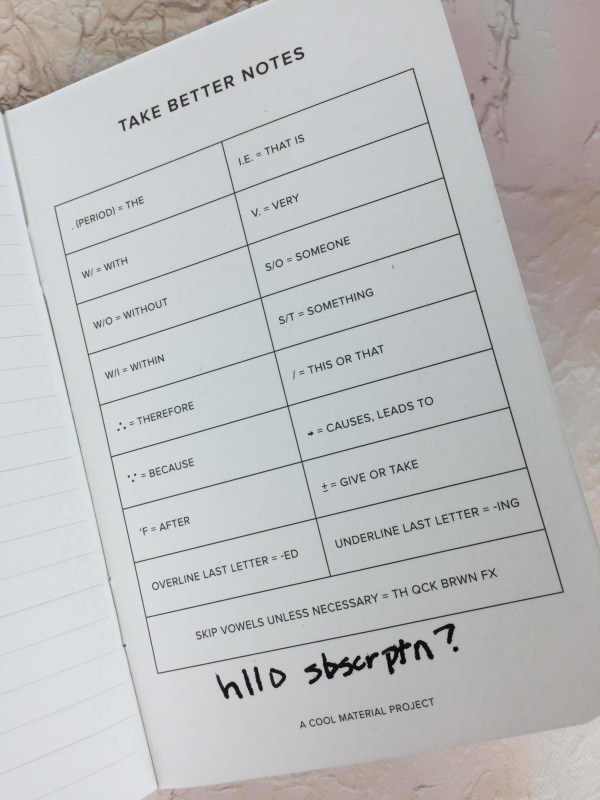 TAKE BETTER NOTES
. (PERIOD) = THE
I.E. = THAT IS
W/ = WITH
V. = VERY
W/O = WITHOUT
S/O = SOMEONE
W/I = WITHIN
S/T = SOMETHING
∴ = THEREFORE
/ = THIS OR THAT
∵ = BECAUSE
→ = CAUSES, LEADS TO
'F = AFTER
± = GIVE OR TAKE
OVERLINE LAST LETTER = -ED
UNDERLINE LAST LETTER = -ING
SKIP VOWELS UNLESS NECESSARY = TH QCK BRWN FX
hllo sbscrptn?
A COOL MATERIAL PROJECT